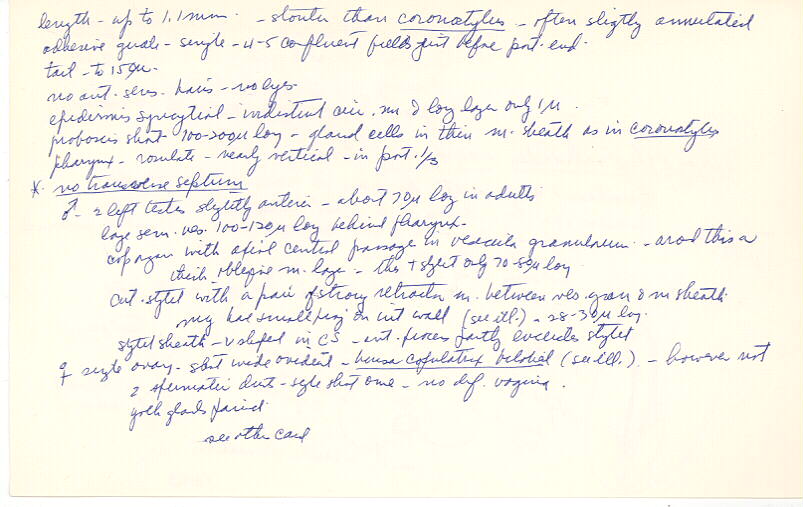 length - up to 1.1 mm. - stouter than coronostylus - often slightly annulated
adhesive glands - single - 4-5 confluent fields just before post. end.
tail - to 150µ.
no ant. sens. hairs - no eyes.
epidermis syncytial - indistinct circ. m & long layer only 1µ.
proboscis short - 100-200µ long - gland cells in thin m. sheath as in coronostylus
pharynx - rosulate - nearly vertical - in post. 1/3
* no transverse septum
♂ - 2 left testes slightly anterior - about 70µ long in adults
large sem. ves. 100-120µ long behind pharynx.
cop organ with axial central passage in vesicula granulorum - around this a
thick oblique m. layer - this + stylet only 70-80µ long
cut. stylet with a pair of strong retractor m. between ves. gran & m sheath.
may have small proj on cut wall (see ill.) - 28-30µ long.
stylet sheath - v shaped in CS - ant. process partly encircles stylet
♀ single ovary - short wide oviduct - bursa copulatrix bilobed (see ill.) - however not
2 spermatic ducts - single short one - no def. vagina.
yolk glands paired
see other card